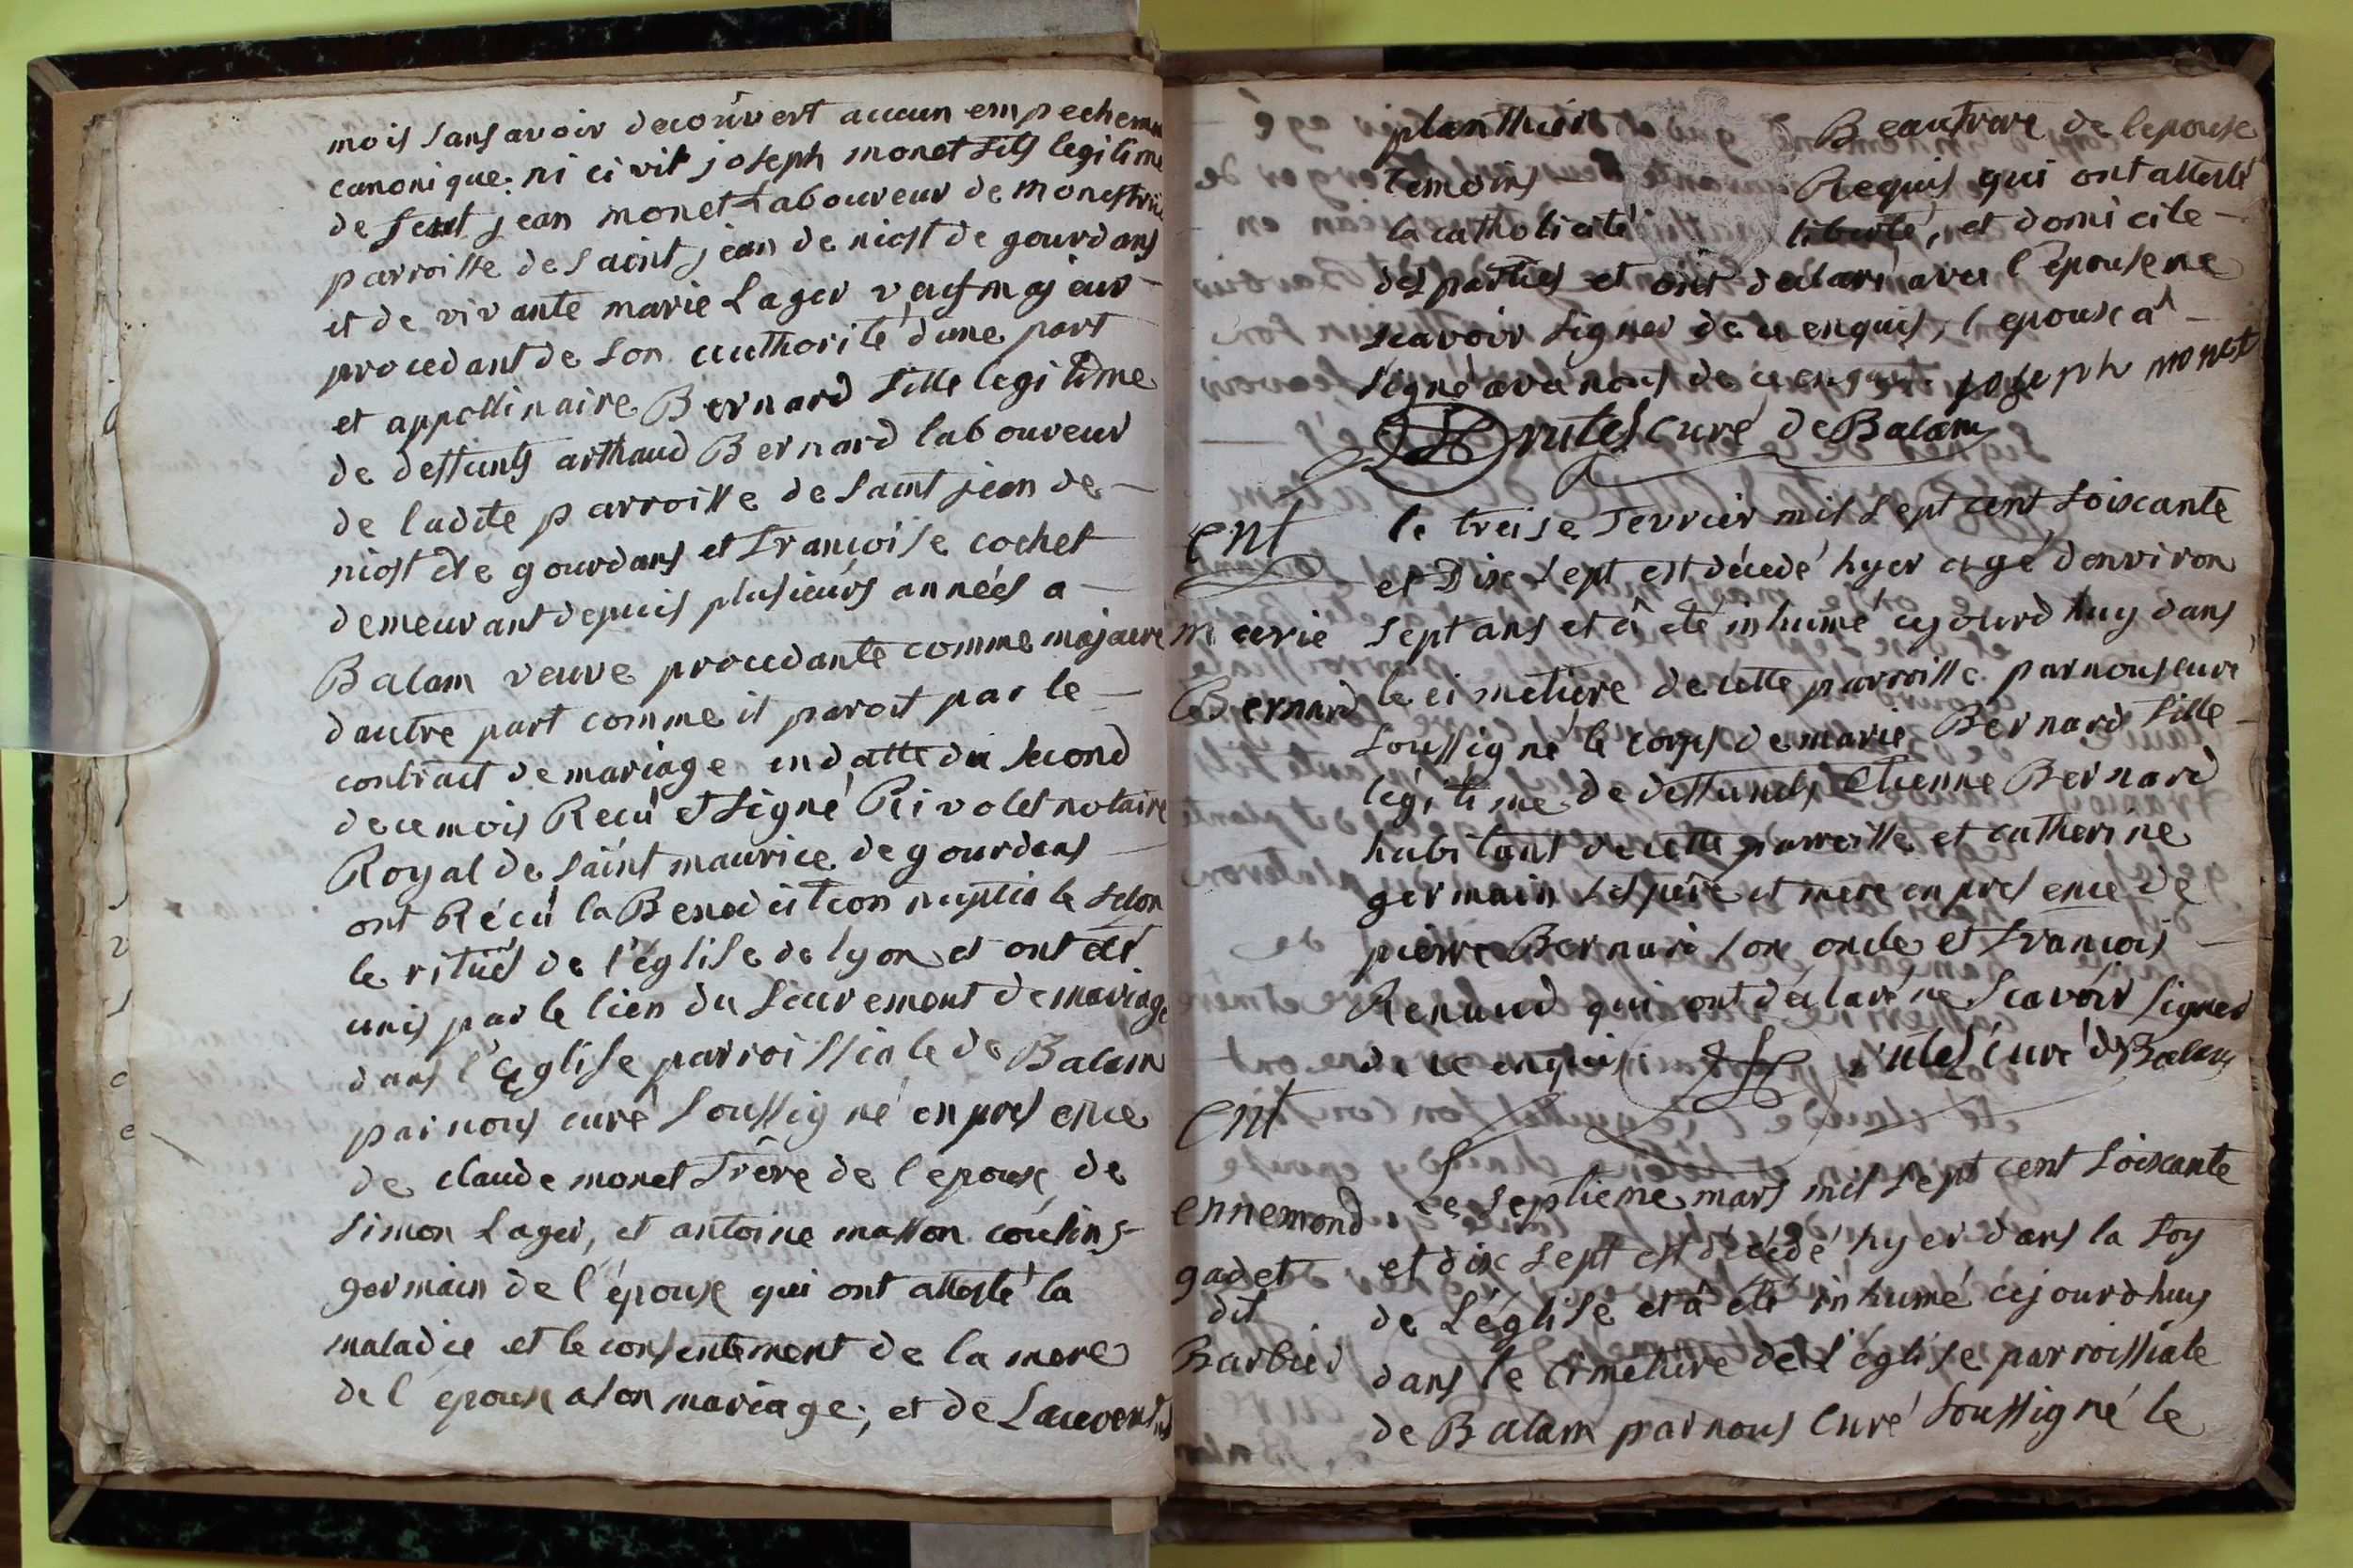 mois sans avoir decouvert aucun empechem
canonique ni civil joseph monet fils legitime
de feut jean monet Laboureur de monestrui
parroisse de saint jean de niost de gourdans
et de vivante marie Lager veuf majeur
procedant de son authorité d'une part
et appollinaire Bernard fille legitime
de deffunts arthaud Bernard laboureur
de ladite parroisse de saint jean de
niost de gourdans et francoise cochet
demeurant depuis plusieurs années a
Balam veuve procedante comme majeure
d'autre part comme il paroit par le
contract de mariage en datte du second
de ce mois Recû et signé Rivolet notaire
Royal de saint maurice de gourdans
ont Récû la Benediction nuptiale selon
le rituel de l'église de lyon et ont été
unis par le lien du sacrement de mariage
dans l'Eglise parroissiale de Balam
par nous curé soussigné en presence
de claude monet frère de l'epoux, de
simon Lager, et antoine masson cousins
germain de l'époux qui ont attesté la
maladie et le consentement de la mere
de l'epoux a son mariage, et de Laurent
planthier Beaufrere de lepouse
temoins Requis qui ont attesté
la catholicité liberté, et domicile
des parties et ont declaré avec l'épouse ne
scavoir signer de ce enquis, l'epoux a
signé avec nous de ce enquis. joseph monet
Brutel curé de Balam
ent le treise fevrier mil sept cent soixante
et Dix sept est décedé hyer agé d'environ
marie sept ans et â été inhumé cejourd'huy dans
Bernard le cimetiere de cette parroisse par nous curé
soussigné le corps de marie Bernard fille
légitime de deffuncts Etienne Bernard
habitant de cette parroisse et catherine
germain ses père et mere en presence de
pierre Bernard son oncle et francois
Renaud qui ont déclaré ne scavoir signer
de ce enquis. Brutel curé de Balam
ent
ennemond Le septieme mars mil sept cent soixante
gadet et dix sept est décédé hyer dans la foy
dit de L'église et â été inhumé cejourd'huy
Barbier dans le cimetiere de l'église parroissiale
de Balam par nous Curé soussigné le